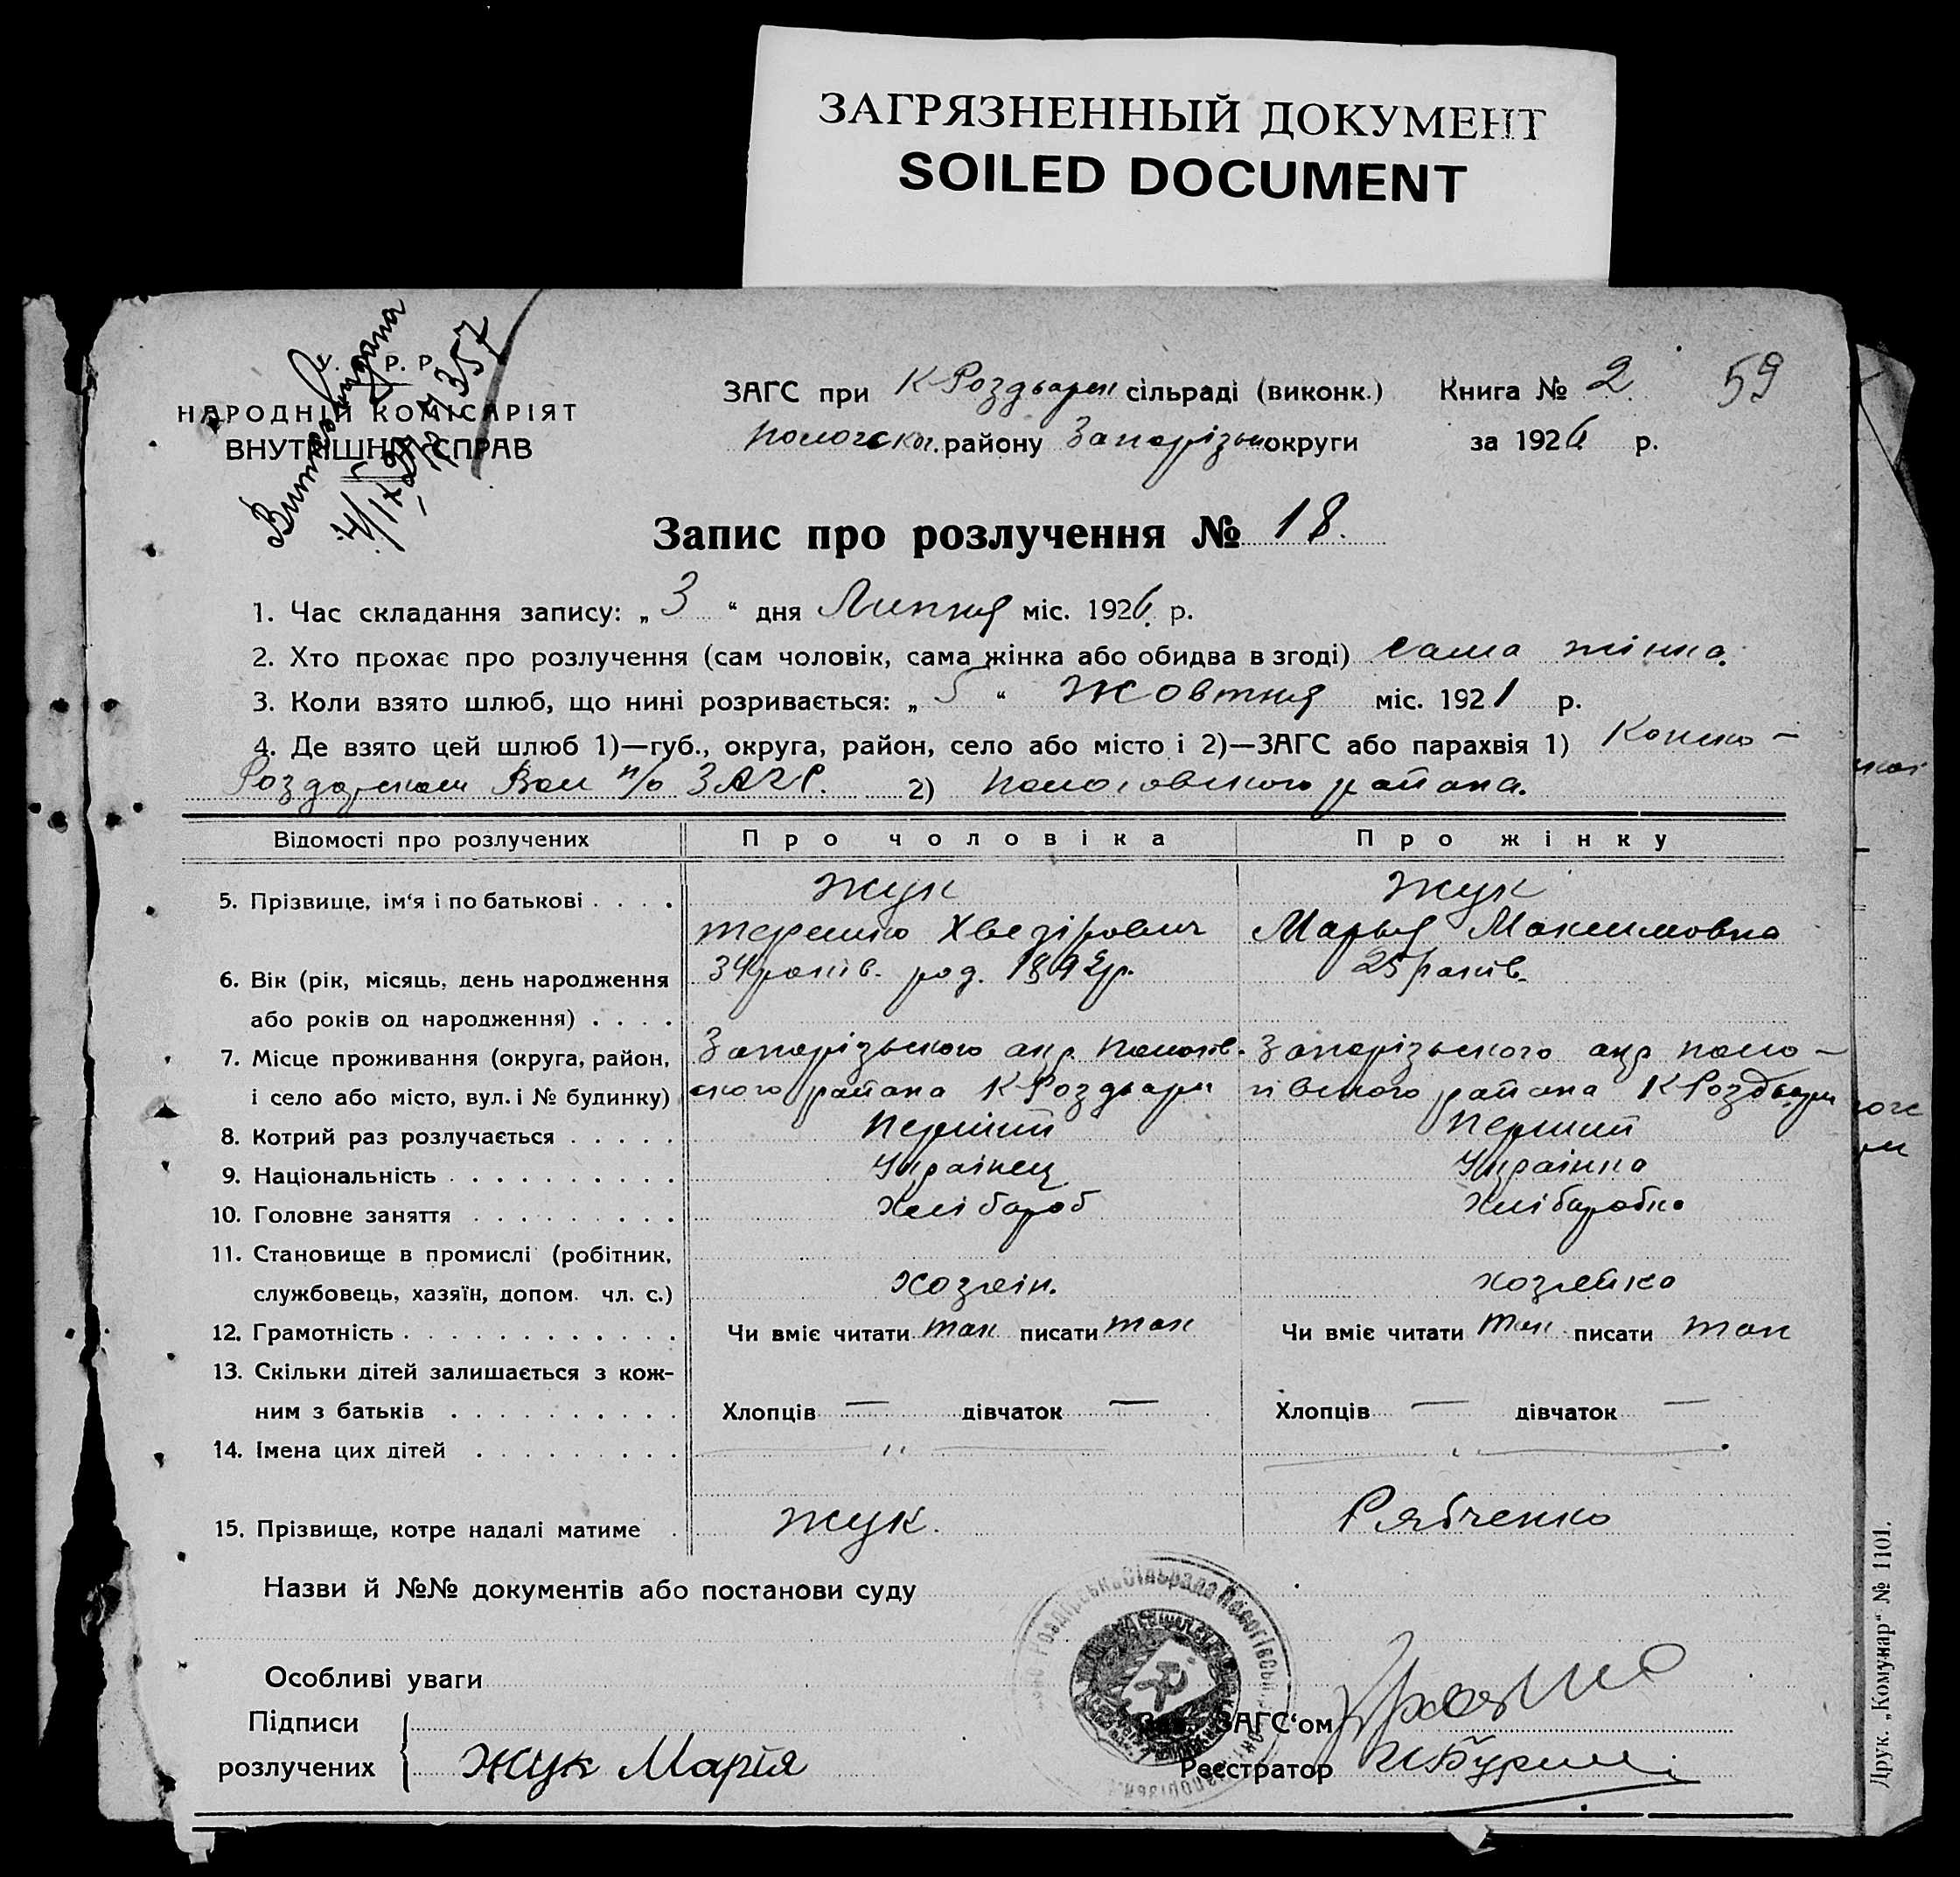 ЗАГРЯЗНЕННЫЙ ДОКУМЕНТ
SOILED DOCUMENT
У. Р. Р.
НАРОДНІЙ КОМІСАРІЯТ
ВНУТРІШНІХ СПРАВ
357
ЗАГС при К Роздьарск сільраді (виконк.) Книга № 2. 59
району Запорізьк округи за 1926 р.
Запис про розлучення № 18.
1. Час складання запису: „ 3 “ дня Липня міс. 1926. р.
2. Хто прохає про розлучення (сам чоловік, сама жінка або обидва в згоді) сама жінка.
3. Коли взято шлюб, що нині розривається: „ 5 “ Жовтня міс. 1921 р.
4. Де взято цей шлюб 1)—губ., округа, район, село або місто і 2)—ЗАГС або парахвія 1) Конско-
Роздорском Вол п/о ЗАГС. 2) Пологовского района.
Відомості про розлучених Про чоловіка Про жінку
5. Прізвище, ім‘я і по батькові . . . . Жук Жук
Терешко Хведірович Марья Максимовна
6. Вік (рік, місяць, день народження 34 років. род. 1892 р. 25 років.
або років од народження) . . . .
7. Місце проживання (округа, район, Запорізького окр Пологів- Запорізького окр поло-
і село або місто, вул. і № будинку) ского района К-Роздьари гівского района К Роздьари
8. Котрий раз розлучається . . . . . Перший Перший
9. Національність . . . . . . . . . . Українец Українка
10. Головне заняття . . . . . . . . . Хлібороб Хліборобка
11. Становище в промислі (робітник,
службовець, хазяїн, допом. чл. с.) хозяін. хозяйка
12. Грамотність . . . . . . . . . . . . Чи вміє читати так писати так Чи вміє читати так писати так
13. Скільки дітей залишається з кож-
ним з батьків . . . . . . . . . . Хлопців — дівчаток — Хлопців — дівчаток —
14. Імена цих дітей . . . . . . . . .
15. Прізвище, котре надалі матиме . Жук. Рябченко
Назви й №№ документів або постанови суду
Особливі уваги
Підписи
розлучених Жук Марія
Зав. ЗАГС‘ом
Реєстратор
Сільрада Пологівськ
Друк. „Комунар“ № 1101.